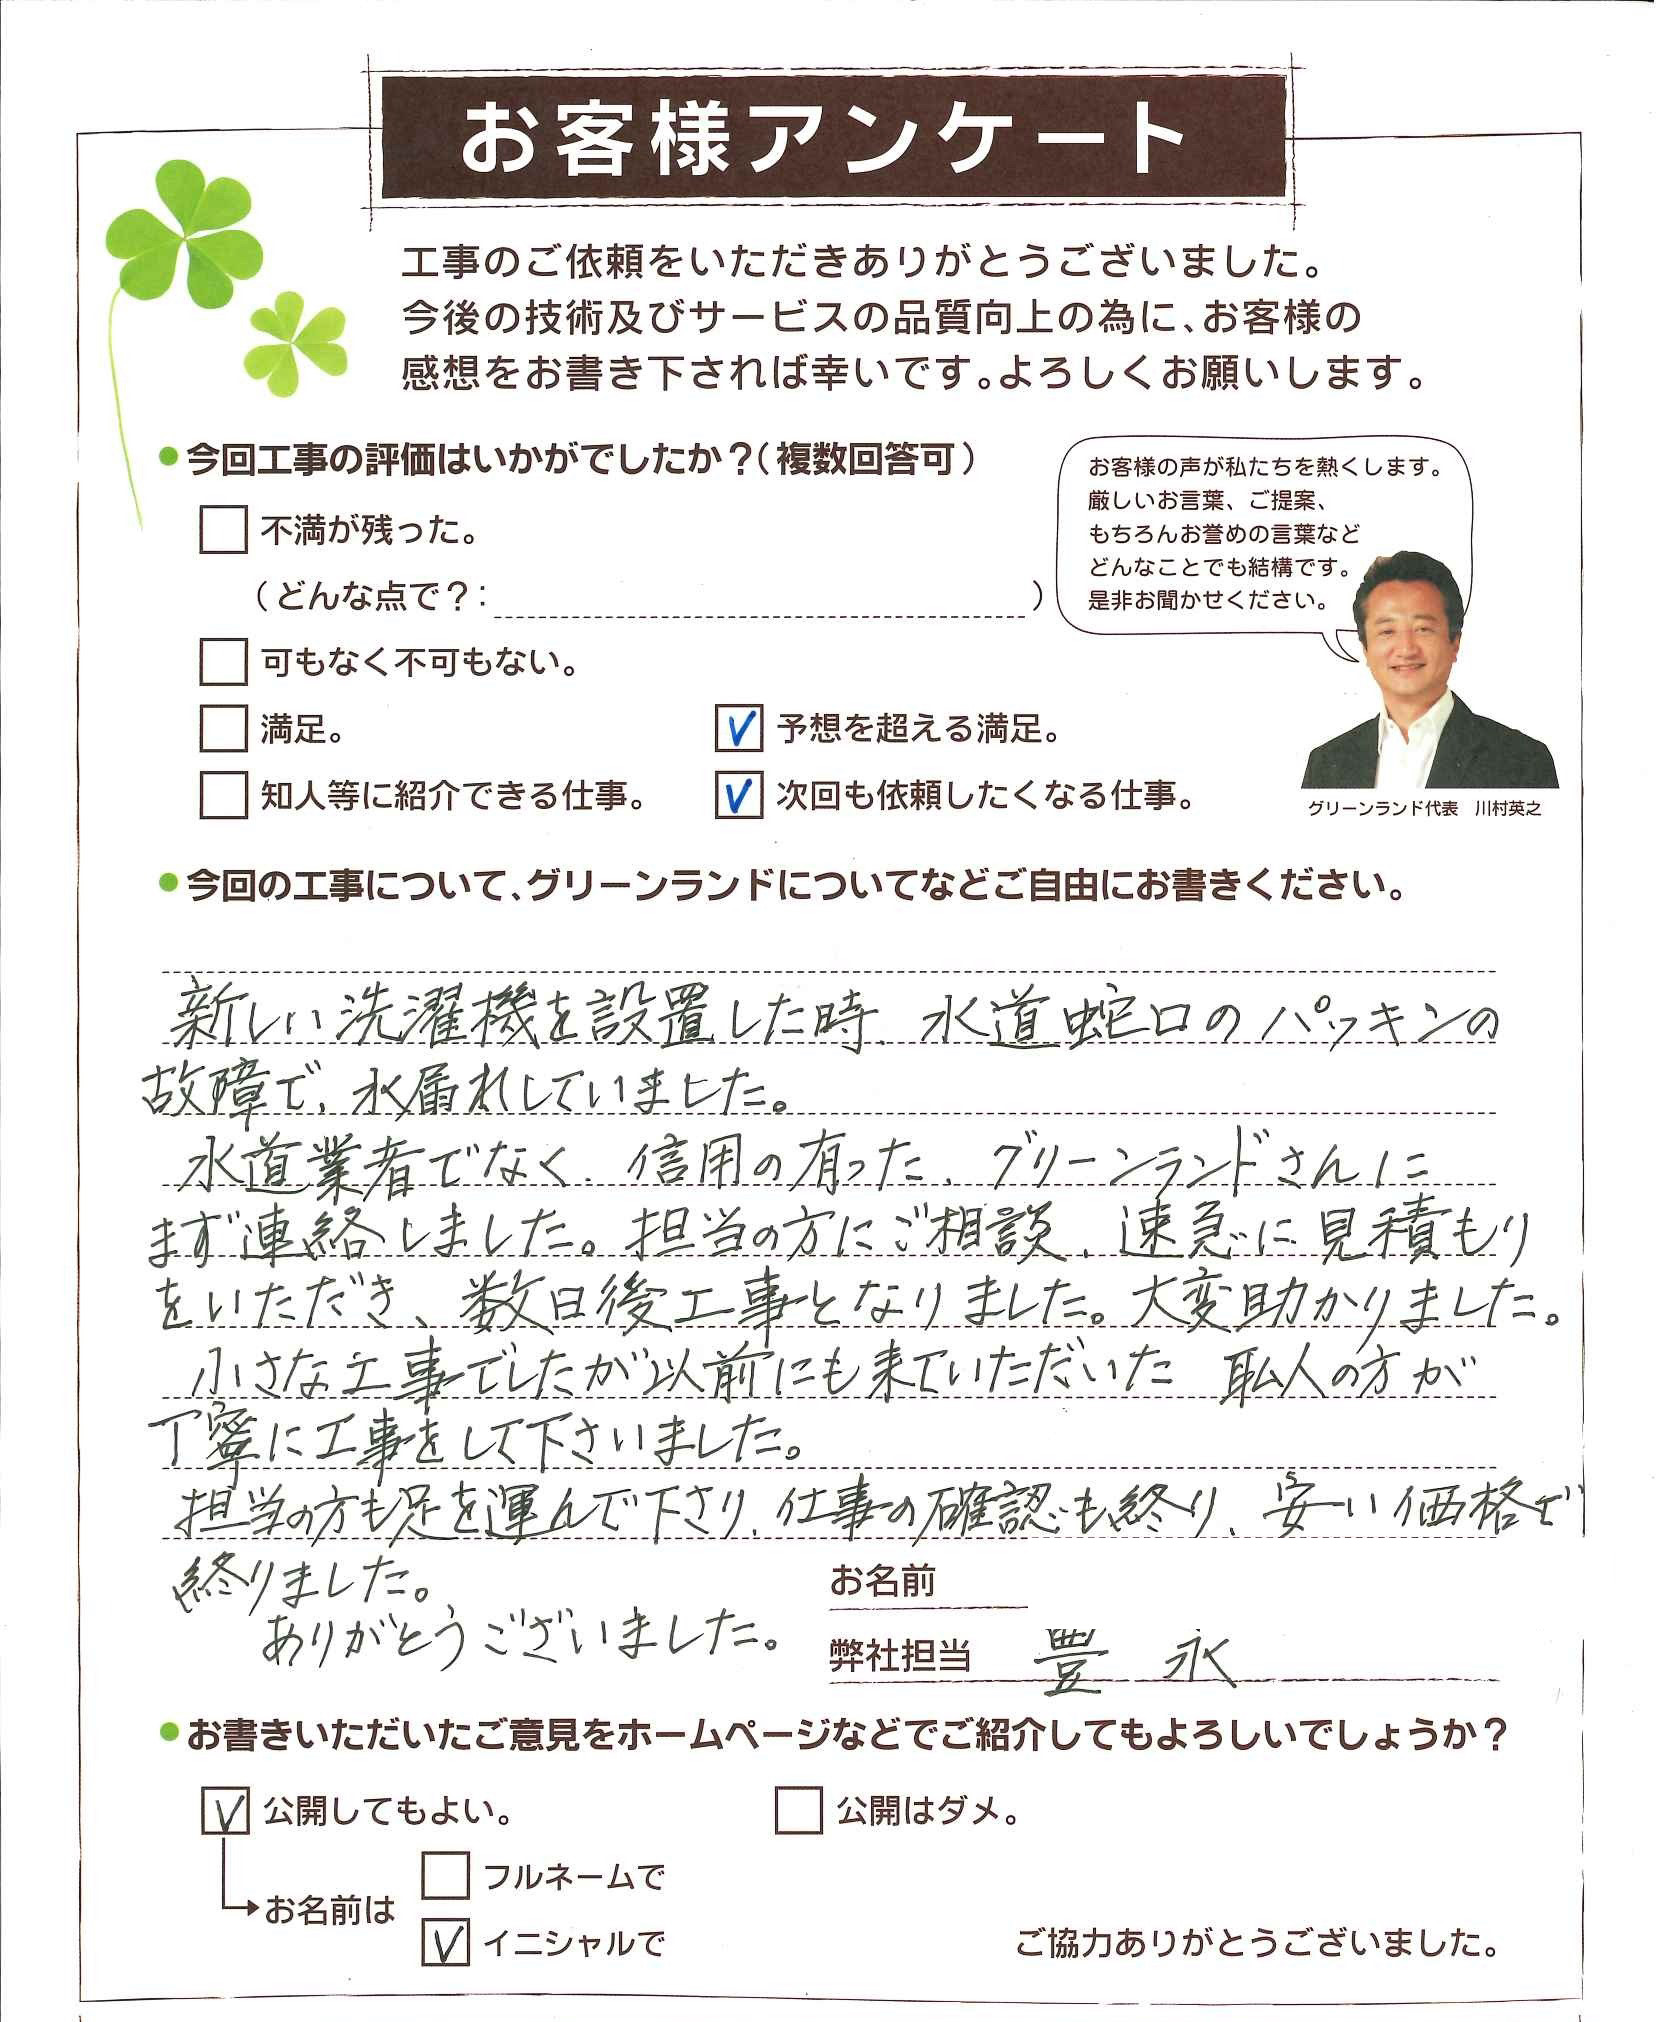 お客様アンケート
工事のご依頼をいただきありがとうございました。
今後の技術及びサービスの品質向上の為に、お客様の
感想をお書き下されば幸いです。よろしくお願いします。
●今回工事の評価はいかがでしたか？（複数回答可）
不満が残った。
（どんな点で？： ）
可もなく不可もない。
満足。
予想を超える満足。
知人等に紹介できる仕事。
次回も依頼したくなる仕事。
お客様の声が私たちを熱くします。
厳しいお言葉、ご提案、
もちろんお誉めの言葉など
どんなことでも結構です。
是非お聞かせください。
グリーンランド代表　川村英之
●今回の工事について、グリーンランドについてなどご自由にお書きください。
新しい洗濯機を設置した時、水道蛇口のパッキンの
故障で、水漏れしていました。
水道業者でなく、信用の有った、グリーンランドさんに
まず連絡しました。担当の方にご相談、速急に見積もり
をいただき、数日後工事となりました。大変助かりました。
小さな工事でしたが以前にも来ていただいた 職人の方が
丁寧に工事をして下さいました。
担当の方も足を運んで下さり、仕事の確認も終り、安い価格で
終りました。
ありがとうございました。
お名前
弊社担当 豊永
●お書きいただいたご意見をホームページなどでご紹介してもよろしいでしょうか？
公開してもよい。
公開はダメ。
お名前は
フルネームで
イニシャルで
ご協力ありがとうございました。